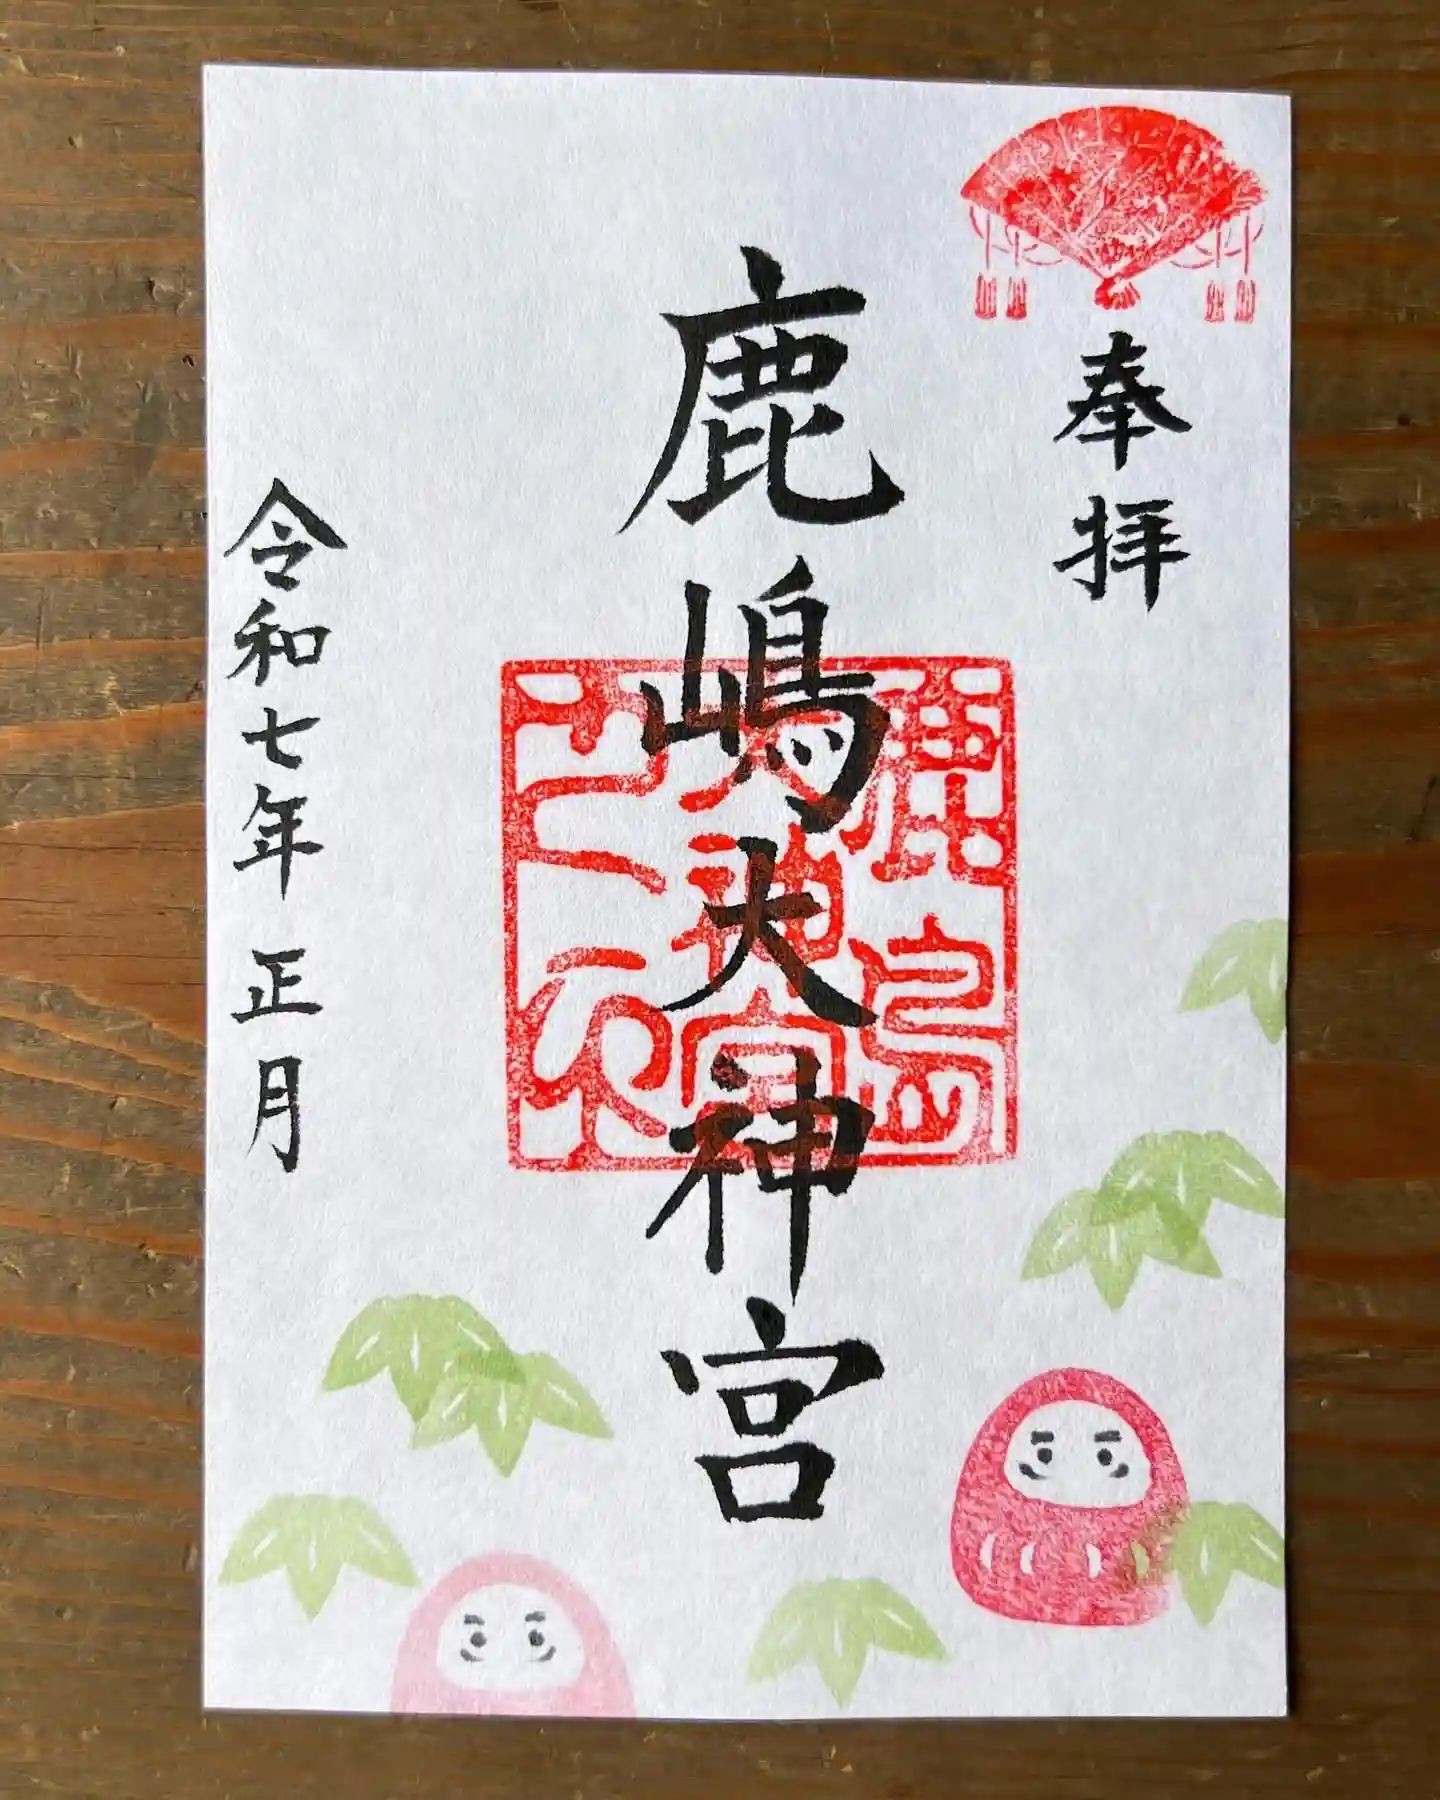 奉拝
鹿嶋大神宮
令和七年正月